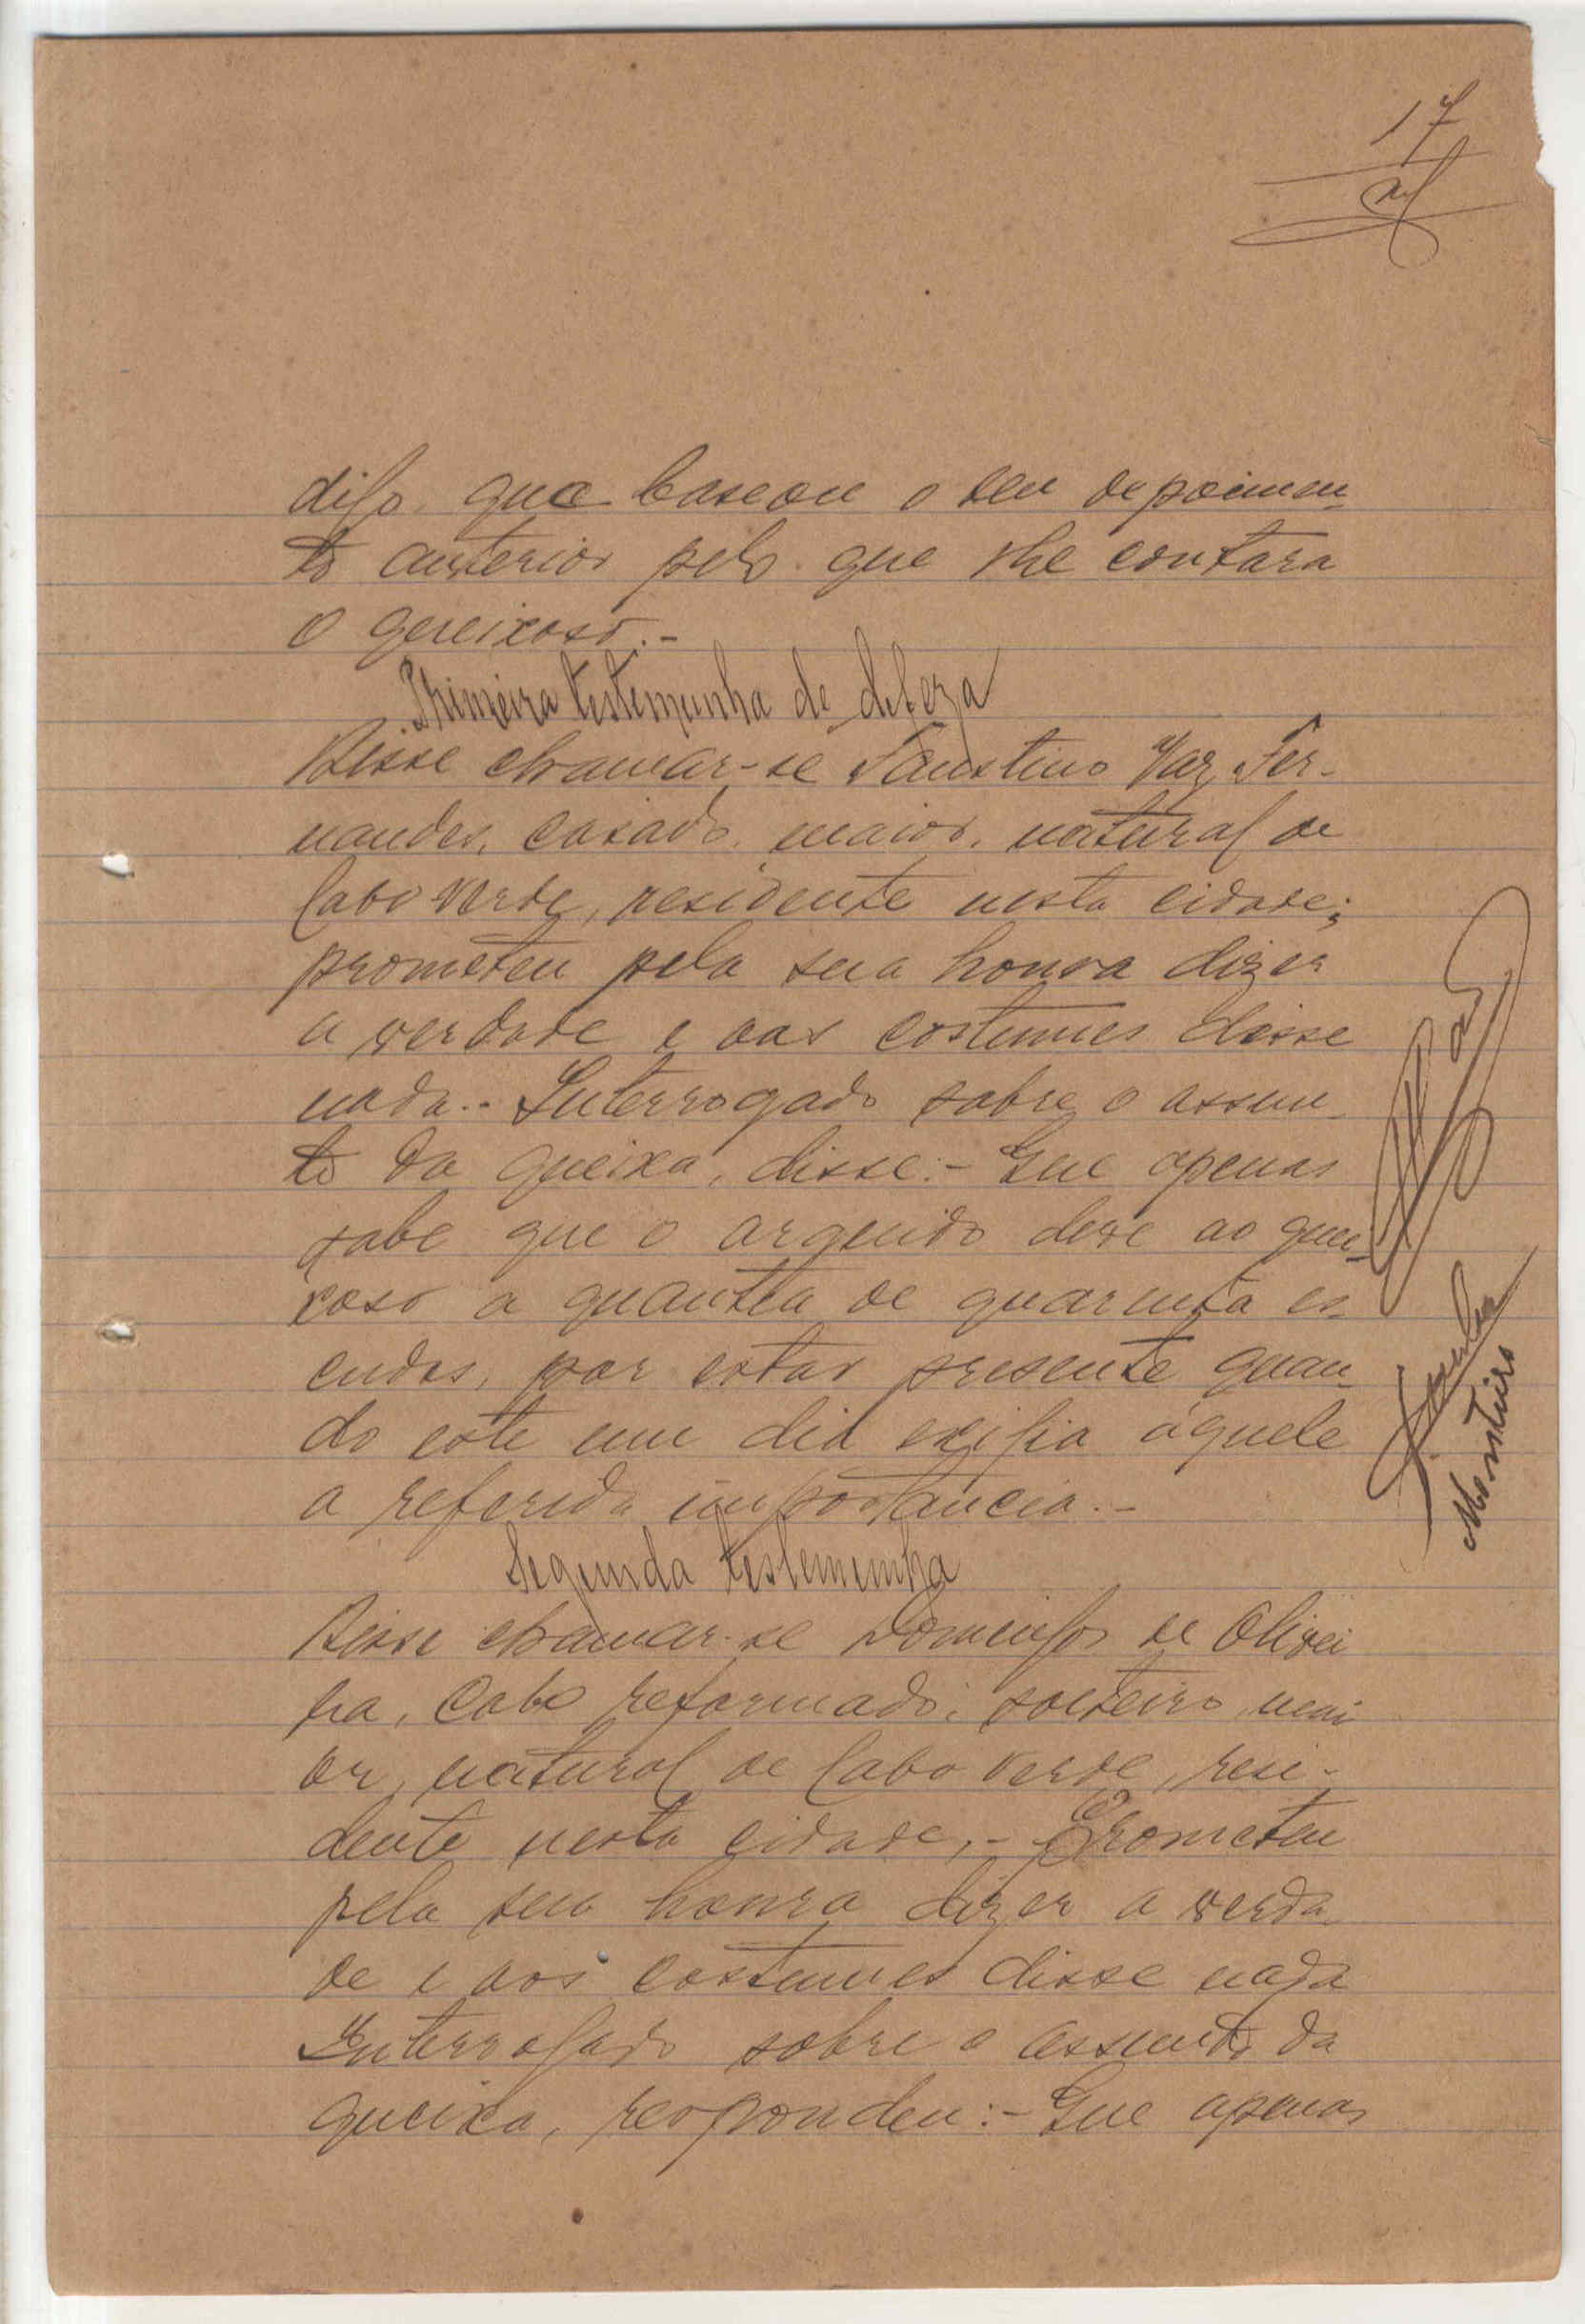 17
digo que baseou o seu depoimen-
to anterior pelo que lhe contara
o queixoso.-
Primeira testemunha de defeza
Disse chamar-se Faustino Vaz Fer-
nandes, casado, maior, natural de
Cabo Verde, residente nesta cidade;
prometeu pela sua honra dizer
a verdade e aos costumes disse
nada.- Interrogado sobre o assun-
to da queixa, disse:- Que apenas
sabe que o arguido deve ao quei-
xoso a quantia de quarenta es-
cudos, por estar presente quan-
do este um dia exigia áquele
a referida importancia.-
Segunda testemunha
Disse chamar-se Domingos de Olivei
ra, Cabo reformado, solteiro, mai
or, natural de Cabo Verde, resi-
dente nesta cidade,- Prometeu
pela sua honra dizer a verda
de e aos costumes disse nada
Interrogado sobre o assunto da
queixa, respondeu:- Que apenas
Monteiro